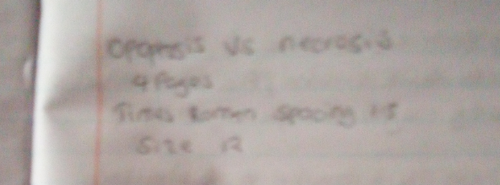 Apoptosis vs necrosis
4 Pages
Times Roman spacing 1.5
Size 12